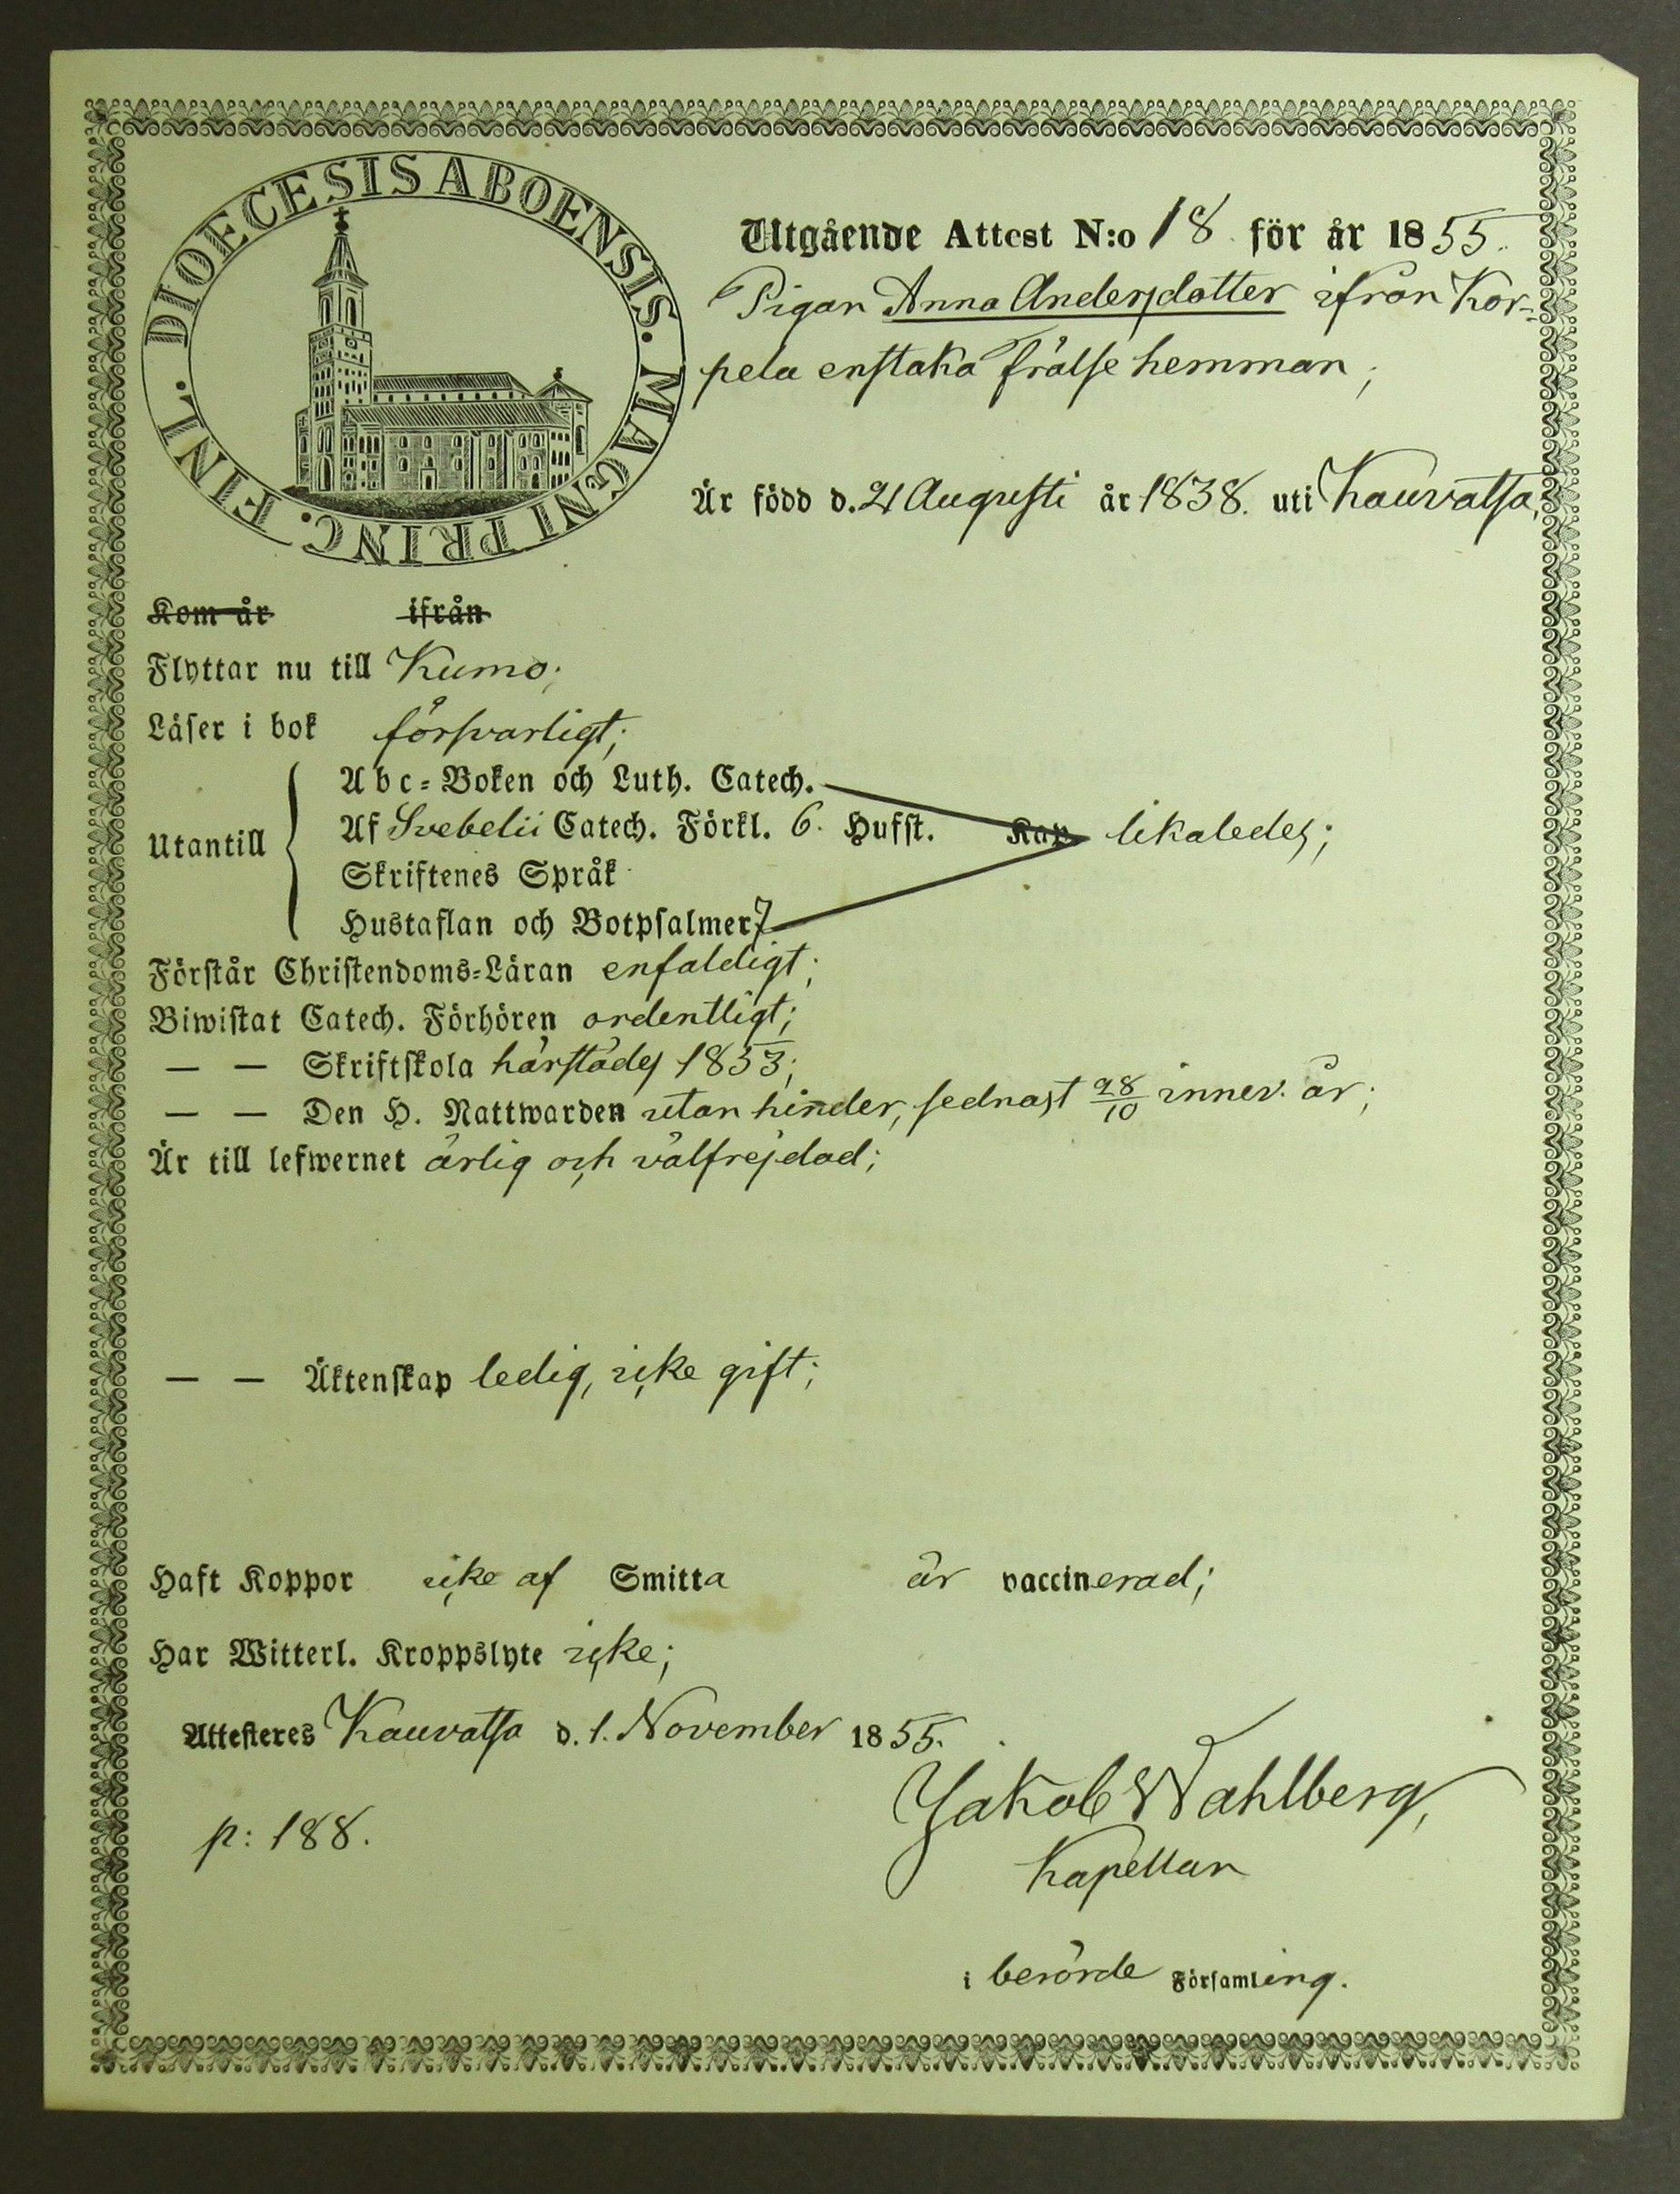 DIOECESIS ABOENSIS. MAGNI PRINC. FINL.
Utgående Attest N:o 18 för år 1855.
Pigan Anna Andersdotter ifrån Kor-
pela enstaka frälse hemman;
Är född d. 21 Augusti år 1838. uti Kauvatsa,
Kom år ifrån
Flyttar nu till Kumo;
Läser i bok försvarligt;
Utantill
Abc-Boken och Luth. Catech.
Af Svebelii Catech. Förkl. 6. Hufst. Kap likaledes;
Skriftenes Språk
Hustaflan och Botpsalmer 7
Förstår Christendoms-Läran enfaldigt;
Biwistat Catech. Förhören ordentligt;
— — Skriftskola härstädes 1853;
— — Den H. Nattwarden utan hinder, sednast 28/10 innev. år;
Är till lefwernet ärlig och välfrejdad;
— — Äktenskap ledig, icke gift;
Haft Koppor icke af Smitta är vaccinerad;
Har Witterl. Kroppslyte icke;
Attesteres Kauvatsa d. 1. November 1855.
Jakob Wahlberg,
p: 188.
Kapellan
i berörde Församling.